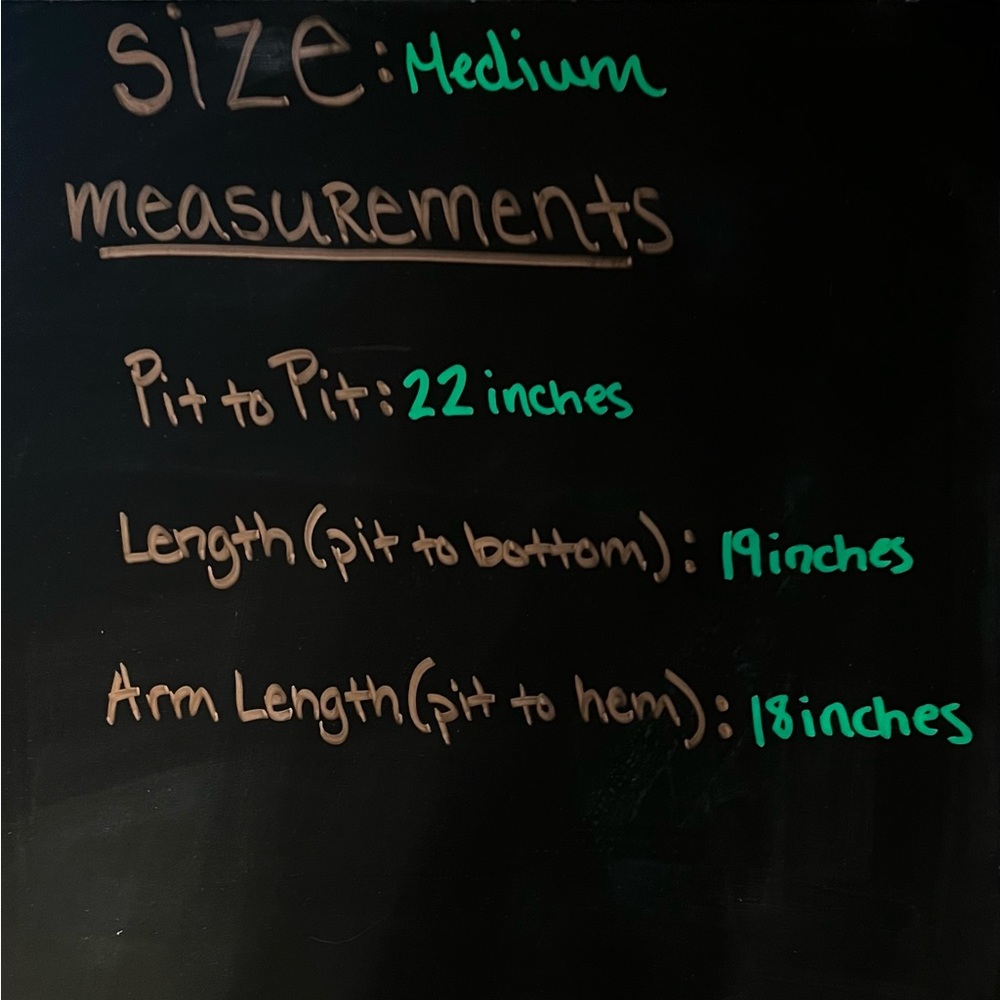 Size: Medium
measurements
Pit to Pit: 22 inches
Length (pit to bottom): 19 inches
Arm Length (pit to hem): 18 inches